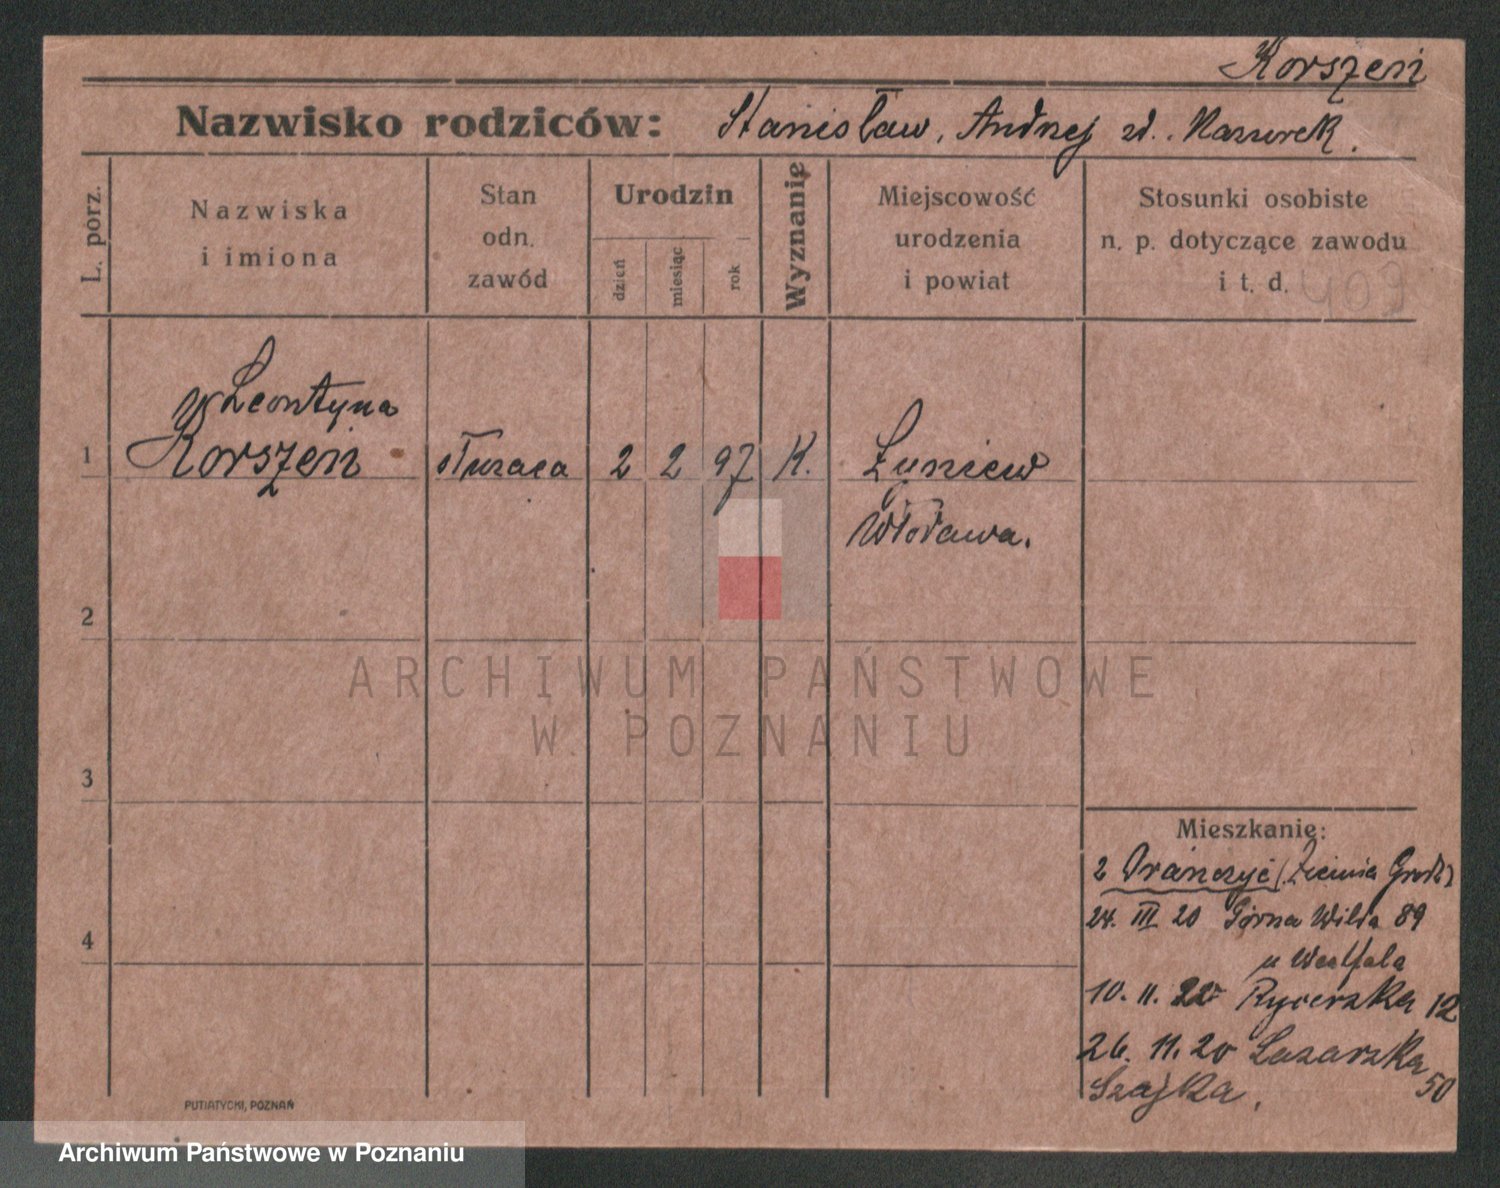 Korszeń
Nazwisko rodziców: Stanisław, Andrzej zd. Mazurek.
L. porz.
Nazwiska
i imiona
Stan
odn.
zawód
Urodzin
dzień
miesiąc
rok
Wyznanie
Miejscowość
urodzenia
i powiat
Stosunki osobiste
n. p. dotyczące zawodu
i t. d.
409
Leontyna
1 Korszeń służąca 2 2 97 K. Łyniew
Włodawa.
2
ARCHIWUM PAŃSTWOWE
W POZNANIU
3
Mieszkanie:
z Orańczyć (Ziemia Grodz
24. III 20 Górna Wilda 89
4
u Westfala
10. 11. 20 Rycerska 12
26. 11. 20 Łazarska 50
Szajka.
PUTIATYCKI, POZNAŃ
Archiwum Państwowe w Poznaniu